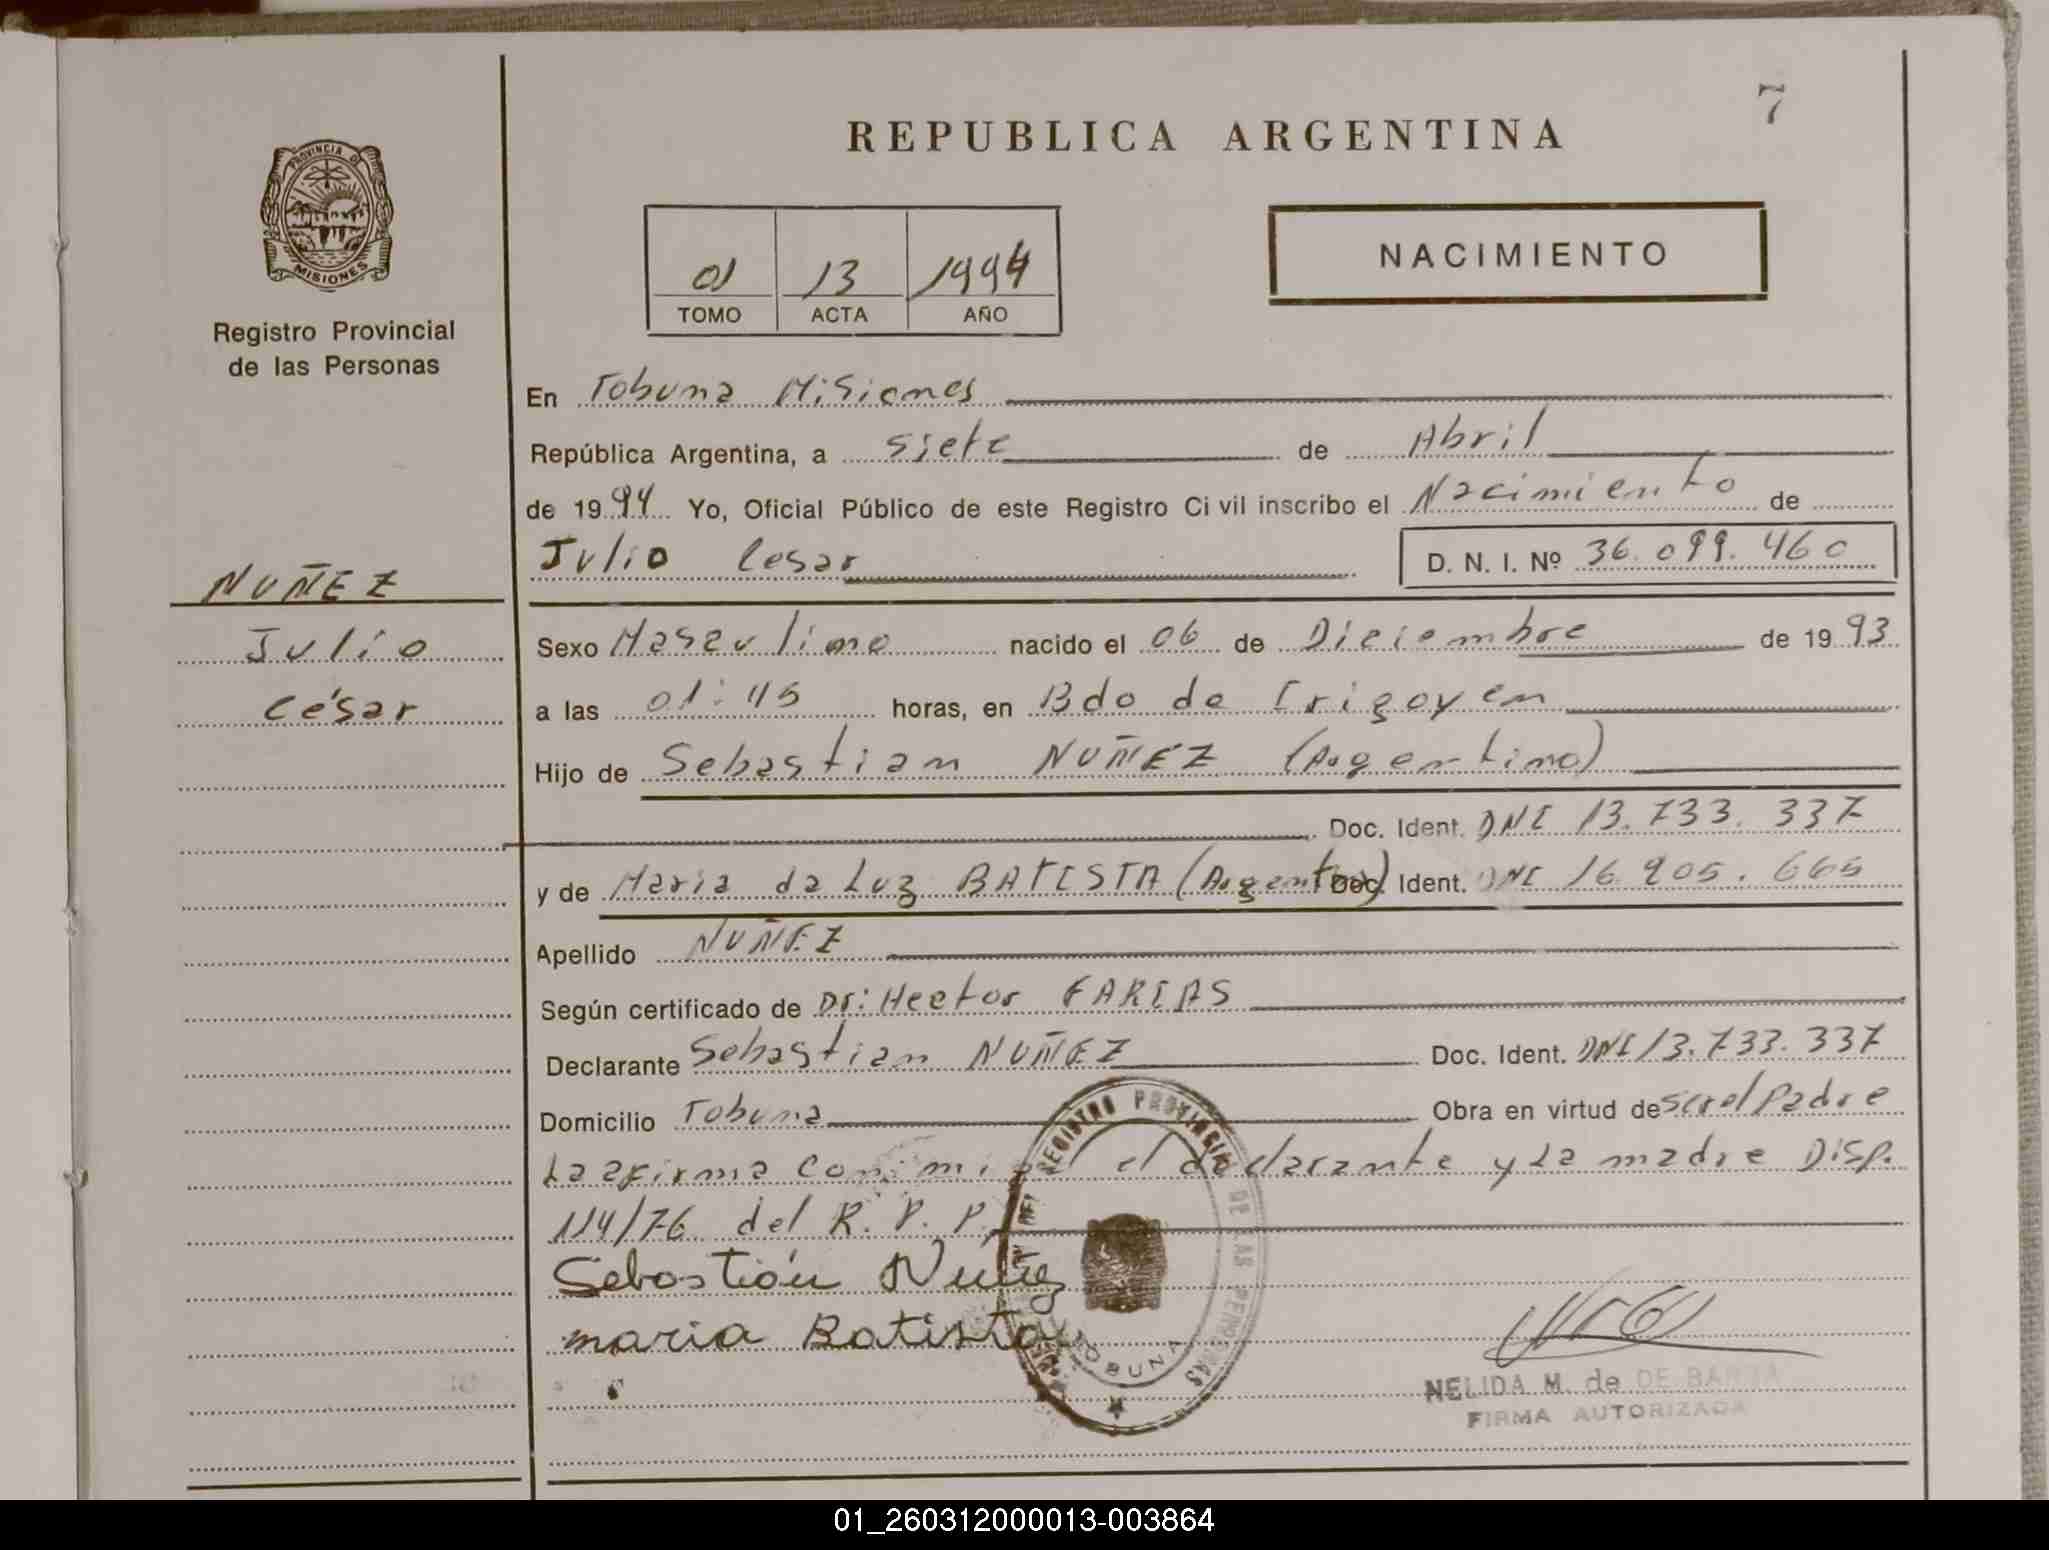 7
REPUBLICA ARGENTINA
PROVINCIA DE
MISIONES
Registro Provincial
de las Personas
01 13 1994
TOMO ACTA AÑO
NACIMIENTO
En Tobuna Misiones
República Argentina, a siete de Abril
de 1994 Yo, Oficial Público de este Registro Civil inscribo el Nacimiento de
Julio Cesar D. N. I. Nº 36.099.460
NUÑEZ
Julio
César
Sexo Masculino nacido el 06 de Diciembre de 1993
a las 01:45 horas, en Bdo de Irigoyen
Hijo de Sebastian NUÑEZ (Argentino)
Doc. Ident. DNI 13.733.337
y de Maria da Luz BATISTA (Argentina) Doc. Ident. DNI 16.905.665
Apellido NUÑEZ
Según certificado de Dr: Hector FARIAS
Declarante Sebastian NUÑEZ Doc. Ident. DNI 13.733.337
Domicilio Tobuna Obra en virtud de ser el Padre
La firma el declarante y La madre DISP.
114/76 del R. P. P.
Sebastián Nuñez
maria Batista
REGISTRO PROVINCIAL DE LAS PERSONAS
TOBUNA
NELIDA M. de DE BARTA
FIRMA AUTORIZADA
01_260312000013-003864